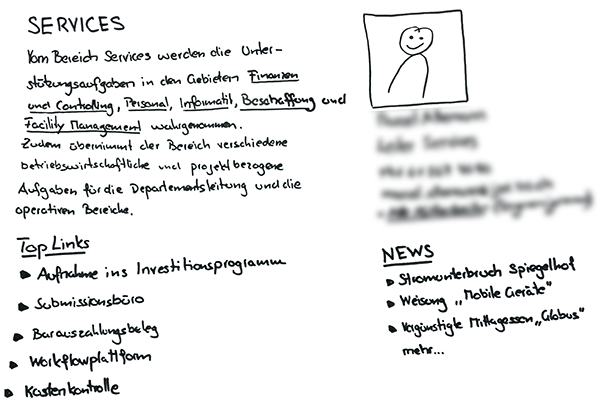 SERVICES
Vom Bereich Services werden die Unter-
stützungsaufgaben in den Gebieten Finanzen
und Controlling, Personal, Informatik, Beschaffung und
Facility Management wahrgenommen.
Zudem übernimmt der Bereich verschiedene
betriebswirtschaftliche und projektbezogene
Aufgaben für die Departementsleitung und die
operativen Bereiche.
Top Links
Aufnahme ins Investitionsprogramm
Submissionsbüro
Barauszahlungsbeleg
Workflowplattform
Kostenkontrolle
Leiter Services
NEWS
Stromunterbruch Spiegelhof
Weisung „Mobile Geräte"
Vergünstigte Mittagessen „Globus"
mehr...